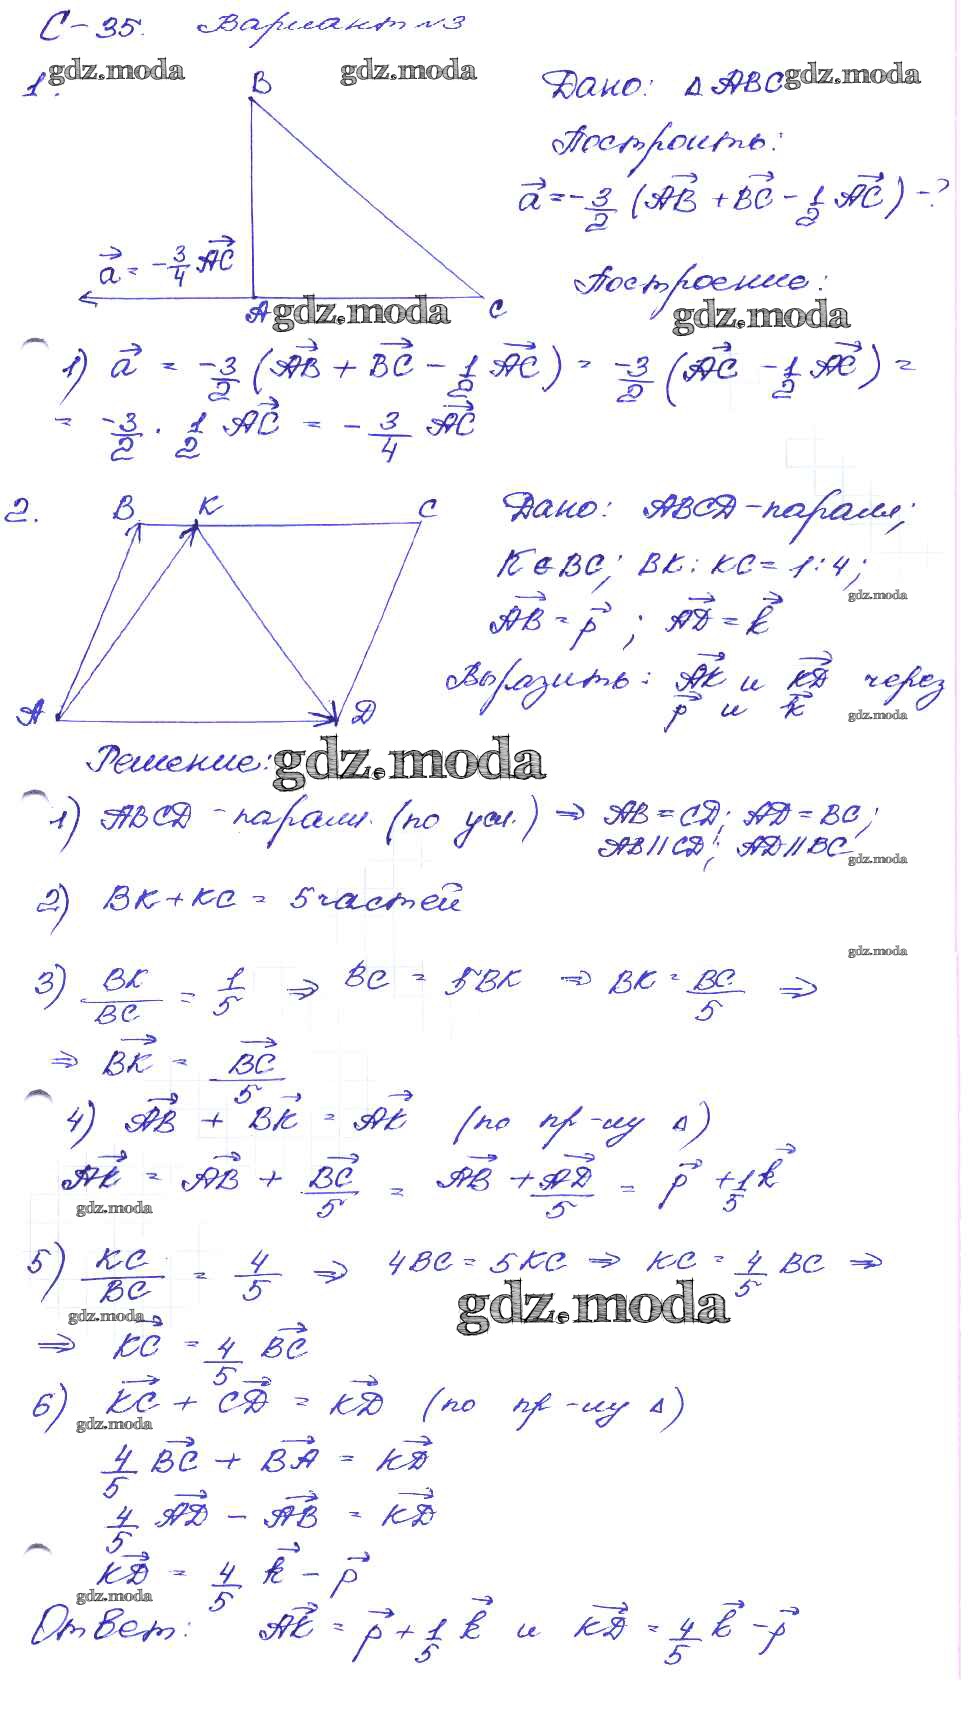 С-35. Вариант №3
gdz.moda gdz.moda gdz.moda
1. B Дано: Δ ABC
Построить:
a⃗ = -3/2 (AB⃗ + BC⃗ - 1/2 AC⃗) -?
a⃗ = -3/4 AC⃗
Построение:
A gdz.moda C gdz.moda
1) a⃗ = -3/2 (AB⃗ + BC⃗ - 1/2 AC⃗) = -3/2 (AC⃗ - 1/2 AC⃗) =
= -3/2 · 1/2 AC⃗ = -3/4 AC⃗
2. B K C Дано: ABCD - паралл;
K ∈ BC; BK : KC = 1 : 4;
gdz.moda
AB⃗ = p⃗ ; AD⃗ = k⃗
Выразить: AK⃗ и KD⃗ через
p⃗ и k⃗ gdz.moda
A D
Решение: gdz.moda
1) ABCD - паралл. (по усл.) ⇒ AB = CD; AD = BC;
AB || CD; AD || BC
gdz.moda
2) BK + KC = 5 частей
gdz.moda
3) BK/BC = 1/5 ⇒ BC = 5BK ⇒ BK = BC/5 ⇒
⇒ BK⃗ = BC⃗/5
4) AB⃗ + BK⃗ = AK⃗ (по пр-лу Δ)
AK⃗ = AB⃗ + BC⃗/5 = AB⃗ + AD⃗/5 = p⃗ + 1/5 k⃗
gdz.moda
5) KC/BC = 4/5 ⇒ 4BC = 5KC ⇒ KC = 4/5 BC ⇒
gdz.moda gdz.moda
⇒ KC⃗ = 4/5 BC⃗
6) KC⃗ + CD⃗ = KD⃗ (по пр-лу Δ)
gdz.moda
4/5 BC⃗ + BA⃗ = KD⃗
4/5 AD⃗ - AB⃗ = KD⃗
KD⃗ = 4/5 k⃗ - p⃗
gdz.moda
Ответ: AK⃗ = p⃗ + 1/5 k⃗ и KD⃗ = 4/5 k⃗ - p⃗